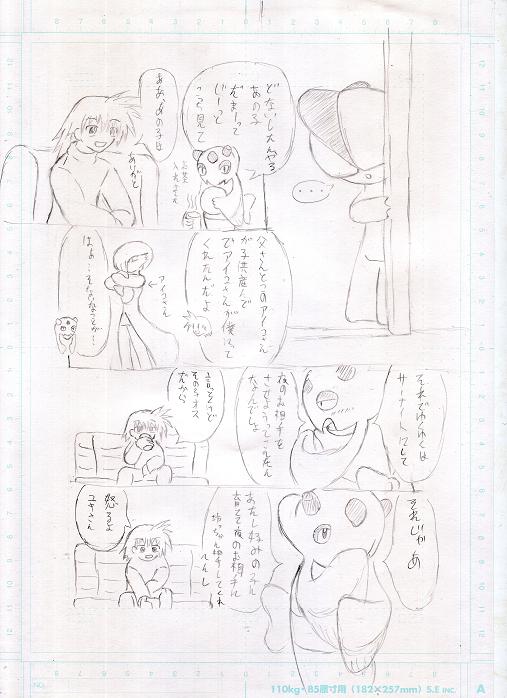 どないしたんやろ
あの子
だまーって
じーっと
こっち見て
ああ、あの子は
ありがと
お茶
入れました
・・・
父さんとこのアイコさん
が子供産んで
でアイコさんが僕にって
くれたんだよ
アイコさん
はぁ…そんなことが…
それでゆくゆくは
サーナイトにして
夜のお相手を
させようってこんたん
なんでしょ
言っとくけど
そのラルトスオス
だから
それじゃあ
あたし好みの子に
育てて夜のお相手に
坊っちゃん
怒るよ
ユキさん
110kg・B5原寸用（182×257mm）S.E INC. A
NO.